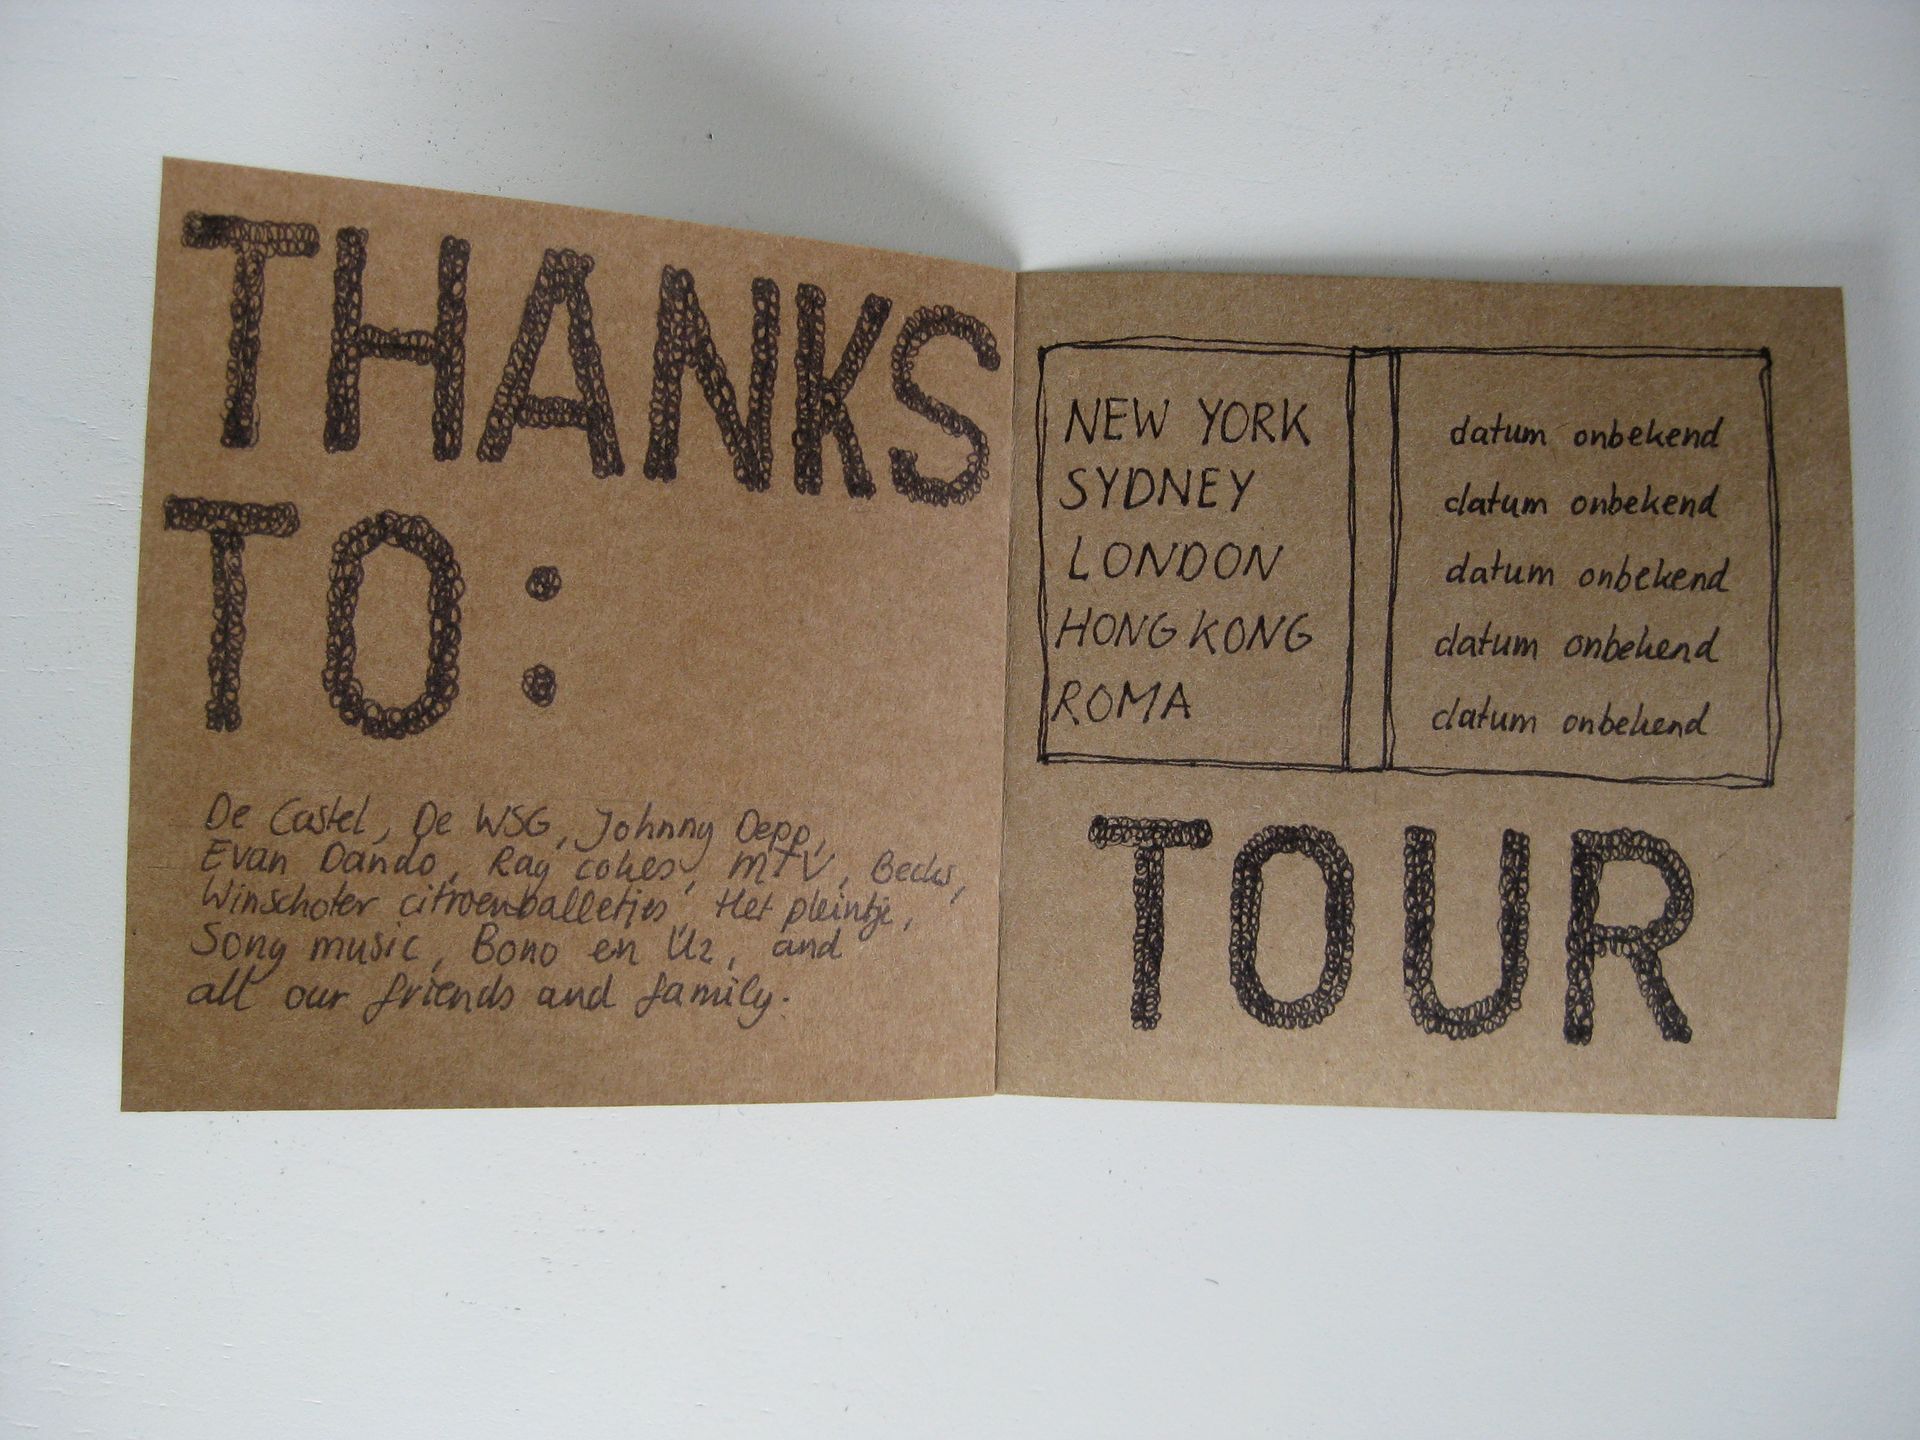 THANKS
TO:
De Castel, De WSG, Johnny Depp,
Evan Dando, Ray cokes, MTV, Becks,
Winschoter citroenballetjes, Het pleintje,
Sony music, Bono en U2, and
all our friends and family.
NEW YORK datum onbekend
SYDNEY datum onbekend
LONDON datum onbekend
HONG KONG datum onbekend
ROMA datum onbekend
TOUR